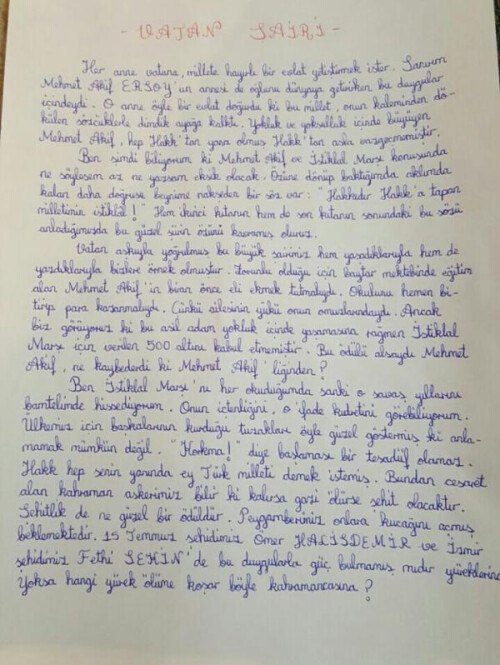 - VATAN ŞAİRİ -
Her anne vatana, millete hayırlı bir evlat yetiştirmek ister. Sanırım
Mehmet Akif ERSOY'un annesi de oğlunu dünyaya getirirken bu duygular
içindeydi. O anne öyle bir evlat doğurdu ki bu millet, onun kaleminden dö-
külen sözcüklerle dimdik ayağa kalktı. Yokluk ve yoksulluk içinde büyüyen
Mehmet Akif, hep Hakk'tan yana olmuş Hakk'tan asla vazgeçmemiştir.
Ben şimdi biliyorum ki Mehmet Akif ve İstiklal Marşı konusunda
ne söylesem az ne yazsam eksik olacak. Özüne dönüp baktığımda aklımda
kalan daha doğrusu beynime nakşeden bir söz var: "Hakkıdır Hakk'a tapan
milletimin istiklal!" Hem ikinci kıtanın hem de son kıtanın sonundaki bu sözü
anladığımızda bu güzel şiirin özünü kavramış oluruz.
Vatan aşkıyla yoğrulmuş bu büyük şairimiz hem yaşadıklarıyla hem de
yazdıklarıyla bizlere örnek olmuştur. Zorunlu olduğu için baytar mektebinde eğitim
alan Mehmet Akif'in biran önce eli ekmek tutmalıydı. Okulunu hemen bi-
tirip para kazanmalıydı. Çünkü ailesinin yükü onun omuzlarındaydı. Ancak
biz görüyoruz ki bu asil adam yokluk içinde yaşamasına rağmen İstiklal
Marşı için verilen 500 altını kabul etmemiştir. Bu ödülü alsaydı Mehmet
Akif, ne kaybederdi ki Mehmet Akif'liğinden?
Ben İstiklal Marşı'nı her okuduğumda sanki o savaş yıllarını
bamtelimde hissediyorum. Onun içtenliğini, o ifade kudretini görebiliyorum.
Ülkemiz için başkalarının kurduğu tuzakları öyle güzel göstermiş ki anla-
mamak mümkün değil. "Korkma!" diye başlaması bir tesadüf olamaz.
Hakk hep senin yanında ey Türk milleti demek istemiş. Bundan cesaret
alan kahraman askerimiz bilir ki kalırsa gazi ölürse şehit olacaktır.
Şehitlik de ne güzel bir ödüldür. Peygamberimiz onlara kucağını açmış
beklemektedir. 15 Temmuz şehidimiz Ömer HALİSDEMİR ve İzmir
şehidimiz Fethi SEKİN'de bu duygularla güç bulmamış mıdır yüreklerine
Yoksa hangi yürek ölüme koşar böyle kahramancasına?